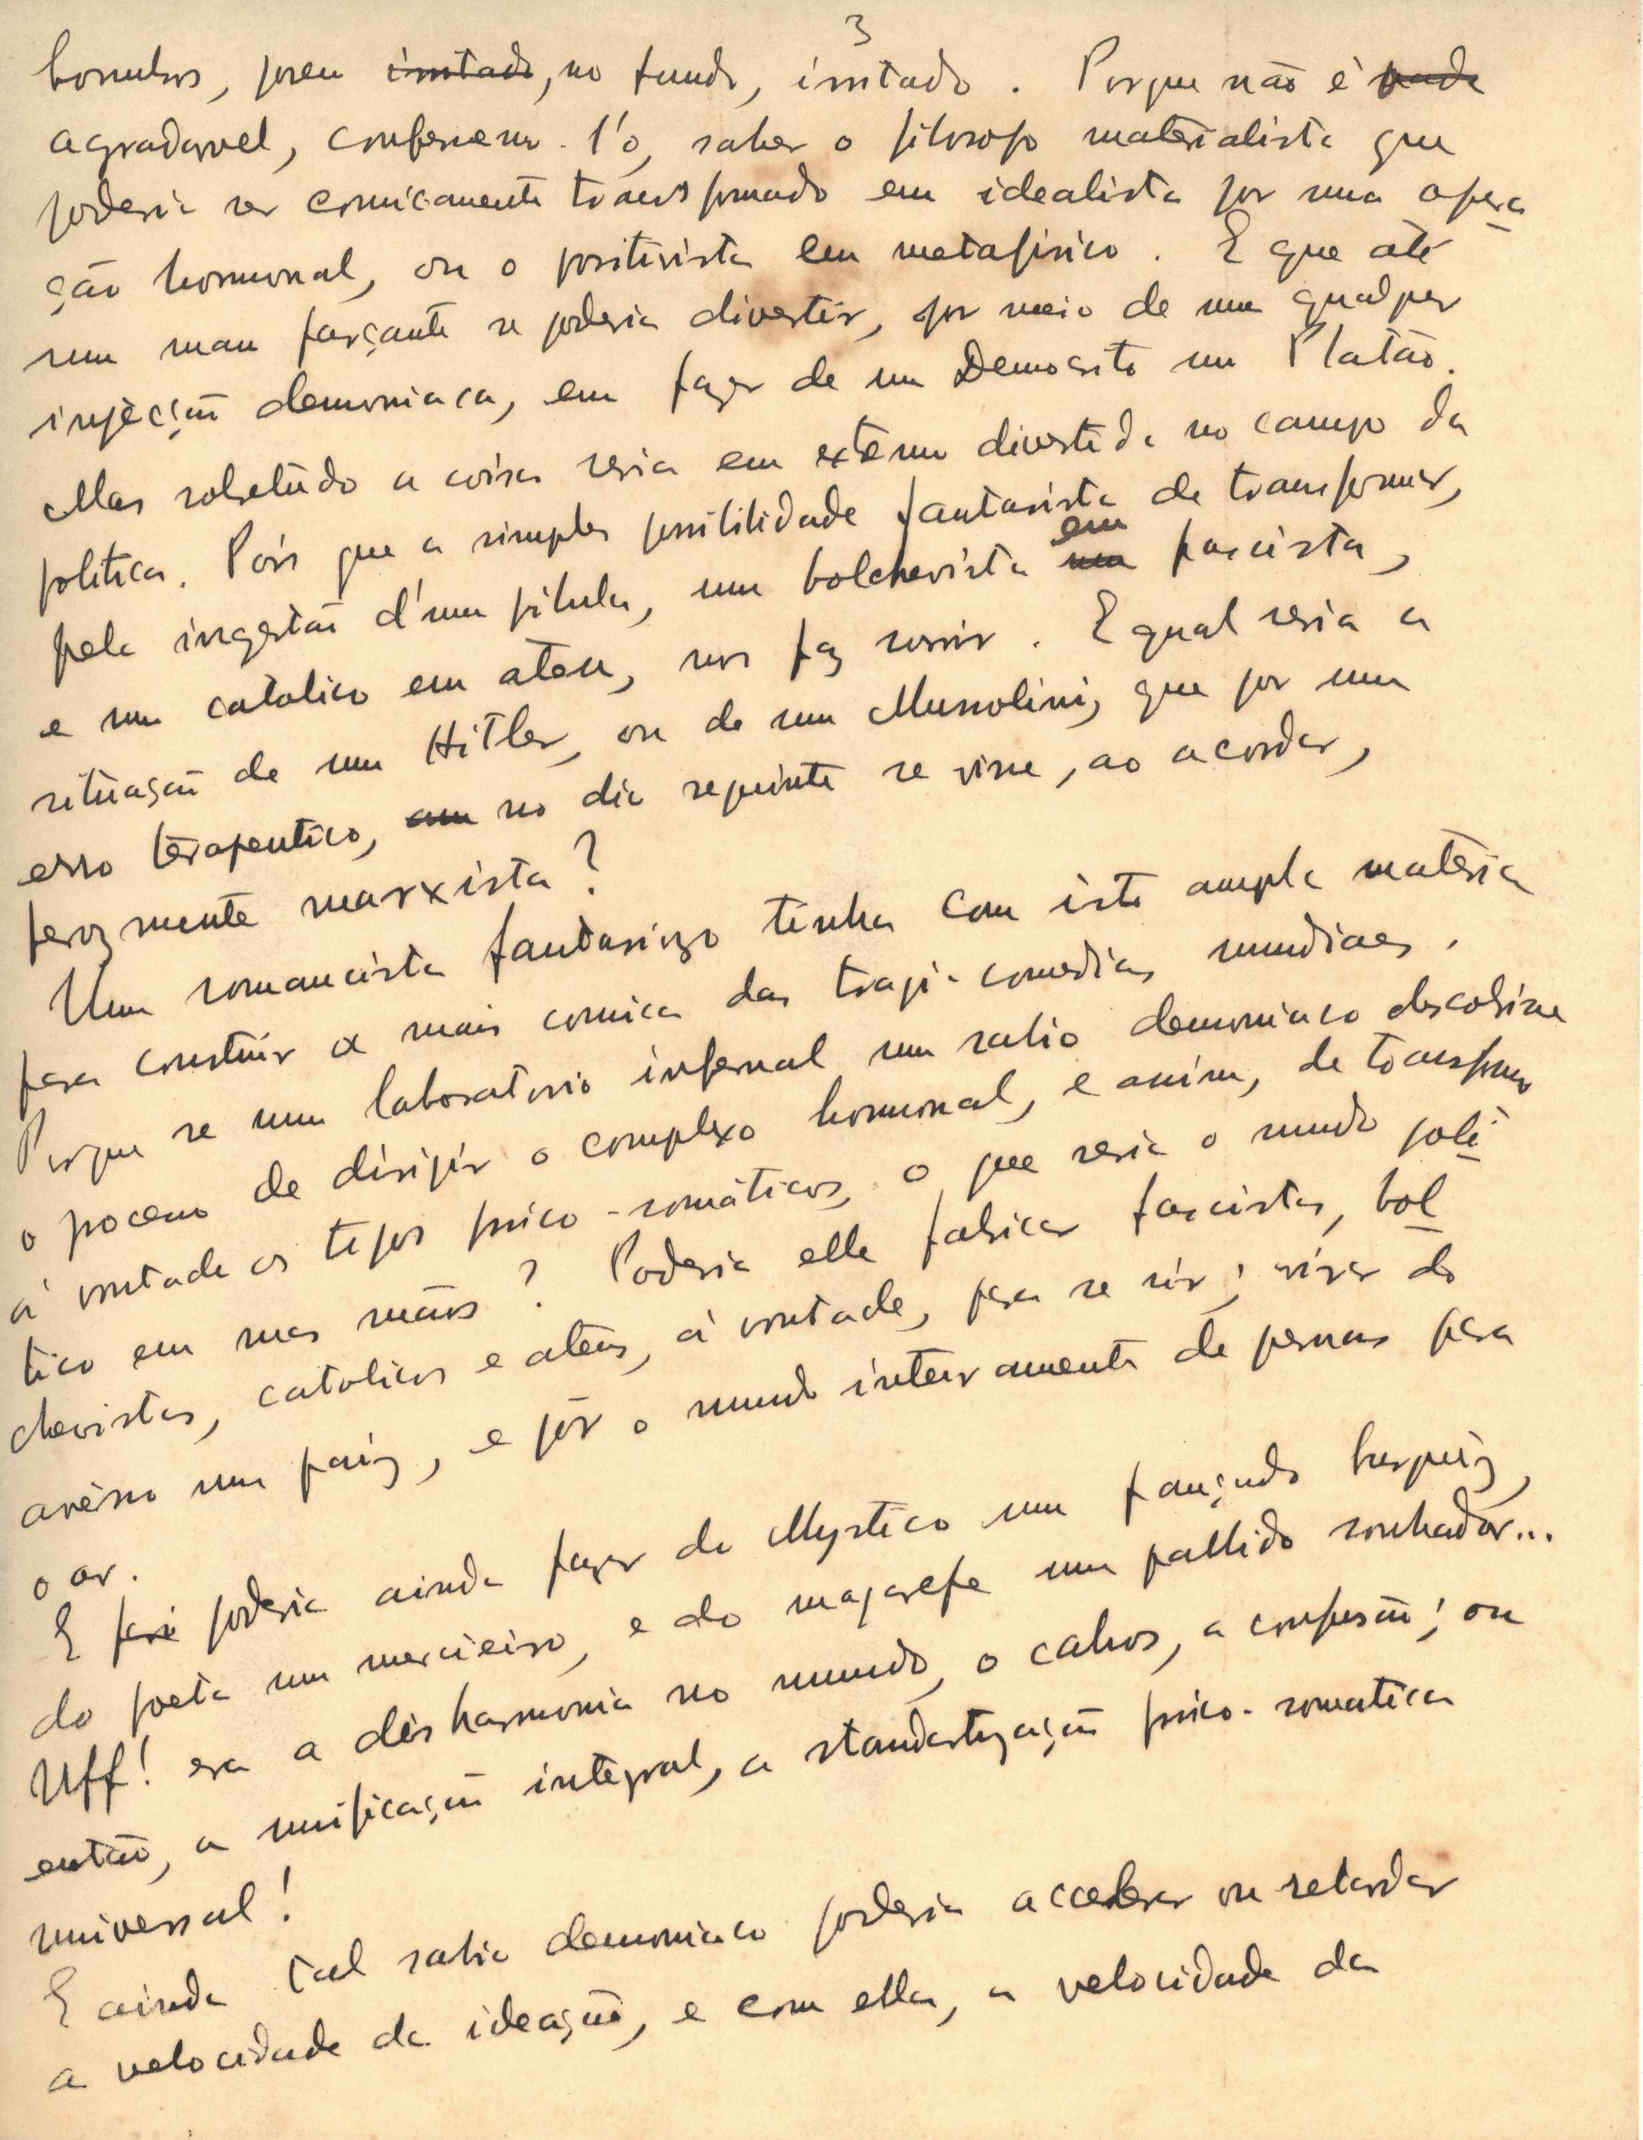 3
bonuhos, porem imitado, no fundo, irritado. Porque não é nada
agradavel, confessemo-l'o, saber o filosofo materialista que
poderia ser comicamente transformado em idealista por uma opera
ção hormonal, ou o positivista em metafisico. E que até
um mau farçante se poderia divertir, por meio de um qualquer
injecção demoniaca, em fazer de um Democrito um Platão.
Mas sobretudo a coisa seria em extremo divertida no campo da
politica. Pois que a simples possibilidade fantasista de transformar,
pela ingestão d'uma pilula, um bolchevista em fascista,
e um catolico em ateu, nos faz sorrir. E qual seria a
situação de um Hitler, ou de um Mussolini, que por um
erro terapeutico, no dia seguinte se visse, ao acordar,
ferozmente marxista?
Um romancista fantasioso tinha com isto ampla materia
para construir a mais comica das tragi-comedias mundiaes.
Porque se num laboratorio infernal um sabio demoniaco descobrisse
o processo de dirigir o complexo hormonal, e assim, de transformar
á vontade os tipos psico-somáticos, o que seria o mundo poli
tico em suas mãos? Poderia elle fabricar fascistas, bol
chevistas, catolicos e ateus, á vontade, para se rir; virar do
avêsso um paiz, e pôr o mundo inteiramente de pernas para
o ar.
E poderia ainda fazer do Mystico um pançudo burguêz,
do poeta um mercieiro, e do magarefe um pallido sonhador...
Uff! era a desharmonia no mundo, o cahos, a confusão; ou
então, a unificação integral, a standartização psico-somatica
universal!
E ainda tal sabio demoniaco poderia accelerar ou retardar
a velocidade da ideação, e com ella, a velocidade da